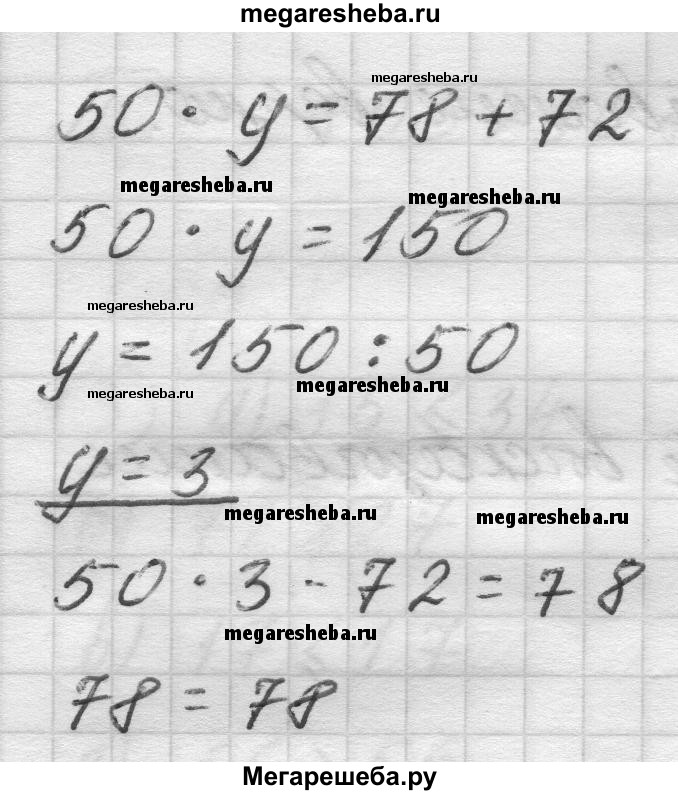 megaresheba.ru
megaresheba.ru
50 · y = 78 + 72
megaresheba.ru
megaresheba.ru
50 · y = 150
megaresheba.ru
y = 150 : 50
megaresheba.ru
megaresheba.ru
y = 3
megaresheba.ru
megaresheba.ru
50 · 3 - 72 = 78
megaresheba.ru
78 = 78
Мегарешеба.ру